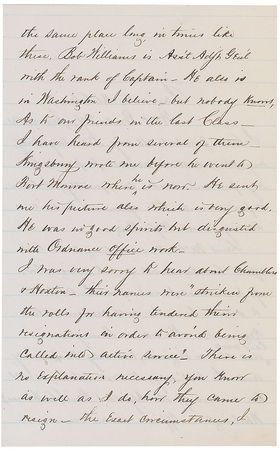 the same place long in times like
these. Bob Williams is Ass't Adj't Gen'l
with the rank of Captain - He also is
in Washington I believe - but nobody knows,
As to our friends in the last Class -
I have heard from several of them -
Kingsbury wrote me before he went to
Fort Monroe where he is now. He sent
me his picture also which is very good.
He was in good spirits but disgusted
with Ordnance office work -
I was very sorry to hear about Chambliss
& Hoxton - their names were "stricken from
the rolls for having tendered their
resignations in order to avoid being
called into active service". There is
no explanation necessary, you know
as well as I do, how they came to
resign - the exact circumstances, I